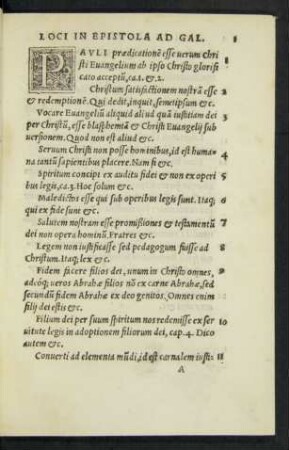 LOCI IN EPISTOLA AD GAL.
PAVLI prædicationē esse uerum Chri 1
sti Euangelium ab ipso Christo glorifi
cato acceptū, ca.1. & 2.
Christum satisfactionem nostrā esse 2
& redemptionē. Qui dedit, inquit, semetipsum &c.
Vocare Euangeliū aliquid aliud quā iustitiam dei 3
per Christū, esse blasphemā & Christi Euangelij sub
uersionem. Quod non est aliud &c.
Seruum Christi non posse hominibus, id est huma 4
na tantū sapientibus placere. Nam si &c.
Spiritum concipi ex auditu fidei & non ex operi 5
bus legis, ca.3. Hoc solum &c.
Maledictos esse qui sub operibus legis sunt. Itaq; 6
qui ex fide sunt &c.
Salutem nostram esse promissiones & testamentū 7
dei non opera hominū. Fratres &c.
Legem non iustificasse sed pedagogum fuisse ad 8
Christum. Itaq; lex &c.
Fidem facere filios dei, unum in Christo omnes, 9
adeóq; ueros Abrahæ filios nō ex carne Abrahæ, sed
secundū fidem Abrahæ ex deo genitos. Omnes enim
filij dei estis &c.
Filium dei per suum spiritum nos redemisse ex ser 10
uitute legis in adoptionem filiorum dei, cap.4. Dico
autem &c.
Conuerti ad elementa mūdi, id est carnalem iusti- 11
A